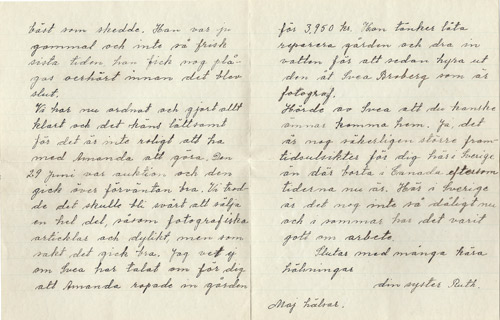 bäst som skedde. Han var ju
gammal och inte så frisk
sista tiden, han fick nog plå-
gas oerhört innan det blev
slut.
Vi har nu ordnat och gjort allt
klart och det känns lättsamt
för det är inte roligt att ha
med Amanda att göra. Den
29 juni var auktion och den
gick över förväntan bra. Vi trod-
de det skulle bli svårt att sälja
en hel del, såsom fotografiska
articklar och dylikt, men som
sakt det gick bra. Jag vet ej
om Svea har talat om för dig
att Amanda ropade in gården
för 3,950 kr. Hon tänker låta
reparera gården och dra in
vatten för att sedan hyra ut
den åt Svea Broberg som är
fotograf.
Hörde av Svea att du kanske
ämnar komma hem. Ja, det
är nog säkerligen större fram-
tidsutsikter för dig här i Sverige
än där borta i Canada eftersom
tiderna nu är. Här i Sverige
är det nog inte så dåligt nu
och i sommar har det varit
gott om arbete.
Slutar med många kära
hälsningar
din syster Ruth.
Maj hälsar.